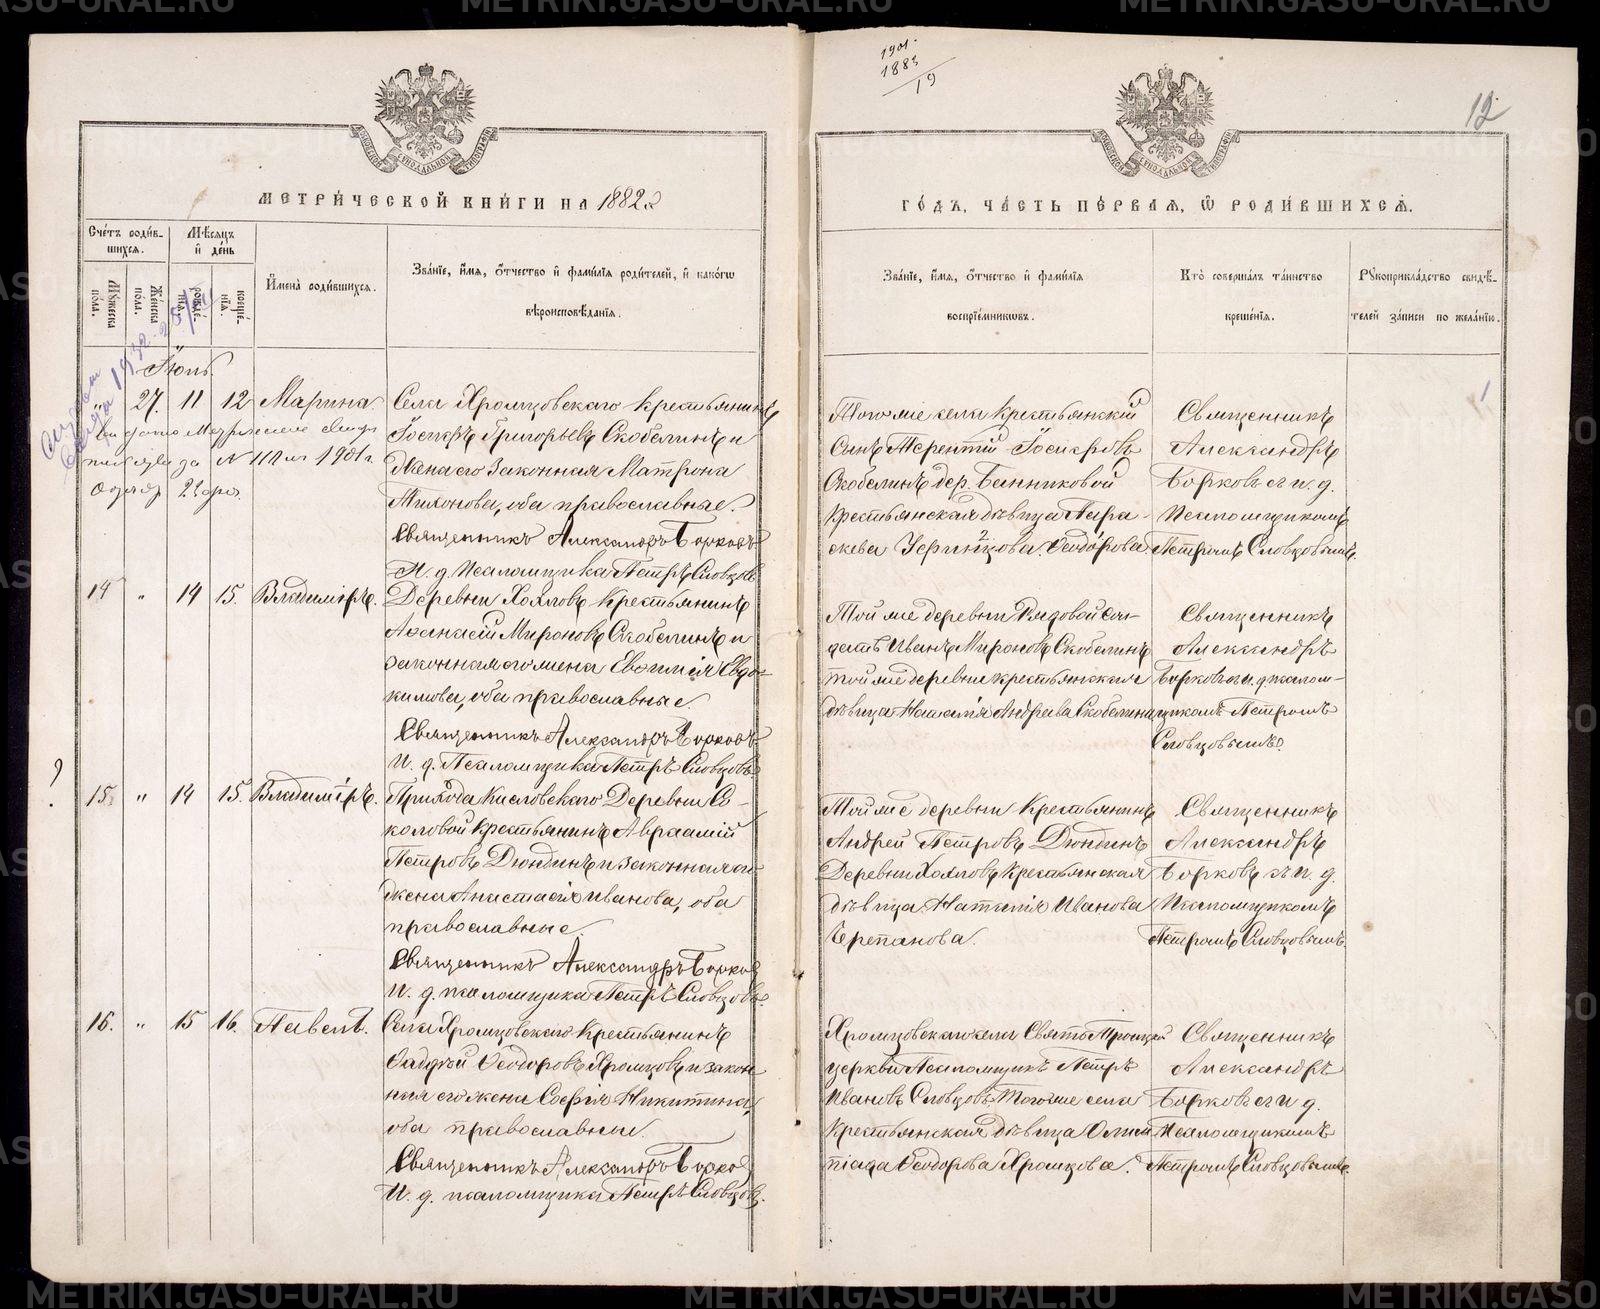 METRIKI.GASO-URAL.RU
1901.
1883
19
12
МЕТРИ́ЧЕСКОЙ КНИ́ГИ НА 1882
ГО́ДЪ, ЧА́СТЬ ПЕ́РВАЯ, Ѽ РОДИ́ВШИХСЯ.
Сче́тъ роди́в-
шихся.
Му́жеска
по́ла.
Же́нска
по́ла.
Мѣ́сяцъ
и де́нь
рожде́-
нїя.
креще́-
нїя.
И҆мена̀ роди́вшихся.
Зва́нїе, и҆́мя, ѻ҆́тчество и҆ фами́лїя роди́телей, и҆ како́гѡ
вѣроисповѣ́данїя.
Зва́нїе, и҆́мя, ѻ҆́тчество и҆ фами́лїя
воспрїе́мникѡвъ.
Кто̀ соверша́лъ та́инство
креще́нїя.
Рꙋкоприкла́дство свидѣ́-
телей за́писи по жела́нїю.
Іюнь
" 27. 11 12 Марина
Села Хромцовскаго крестьянинъ
Іосифъ Григорьевъ Скобелинъ и
жена его законная Матрона
Тихонова, оба православные.
Священникъ Александръ Борковъ
И. д. Псаломщика Петръ Словцовъ
Того же села крестьянскій
Сынъ Терентій Іосифовъ
Скобелинъ дер. Банниковой
Крестьянская дѣвица Пара-
скева Ѳеодорова
Священникъ
Александръ
Борковъ съ и. д.
Псаломщикомъ
Петромъ Словцовымъ.
14 " 14 15. Владиміръ.
Деревни Хохловъ крестьянинъ
Аѳанасій Мироновъ Скобелинъ и
законная его жена Евѳимія Евдо-
кимова, оба православные.
Священникъ Александръ Борковъ
И. д. Псаломщика Петръ Словцовъ.
Той же деревни Рядовой сол-
датъ Иванъ Мироновъ Скобелинъ
той же деревни крестьянская
дѣвица Наталія Андреева Скобелина
Священникъ
Александръ
Борковъ съ и. д. псалом-
щикомъ Петромъ
Словцовымъ.
?
15. " 14 15. Владиміръ.
Прихода Кисловскаго Деревни Со-
коловой Крестьянинъ Авраамій
Петровъ Дюндинъ и законная его
жена Анастасія Иванова, оба
православные.
Священникъ Александръ Борковъ
И. д. псаломщика Петръ Словцовъ.
Той же деревни Крестьянинъ
Андрей Петровъ Дюндинъ
Деревни Хохловъ крестьянская
дѣвица Наталія Иванова
Черепанова.
Священникъ
Александръ
Борковъ съ и. д.
Псаломщикомъ
Петромъ Словцовымъ.
16. " 15 16. Павелъ.
Села Хромцовскаго Крестьянинъ
Ѳаддѣй Ѳеодоровъ Хромцовъ и закон
ная его жена Софія Никитина,
оба православные.
Священникъ Александръ Борковъ
И. д. псаломщика Петръ Словцовъ.
Хромцовскаго села Свято Троицкой
церкви Псаломщикъ Петръ
Ивановъ Словцовъ Того же села
Крестьянская дѣвица Олим
піада Ѳеодорова Хромцова.
Священникъ
Александръ
Борковъ съ и д.
Псаломщикомъ
Петромъ Словцовымъ.
METRIKI.GASO-URAL.RU